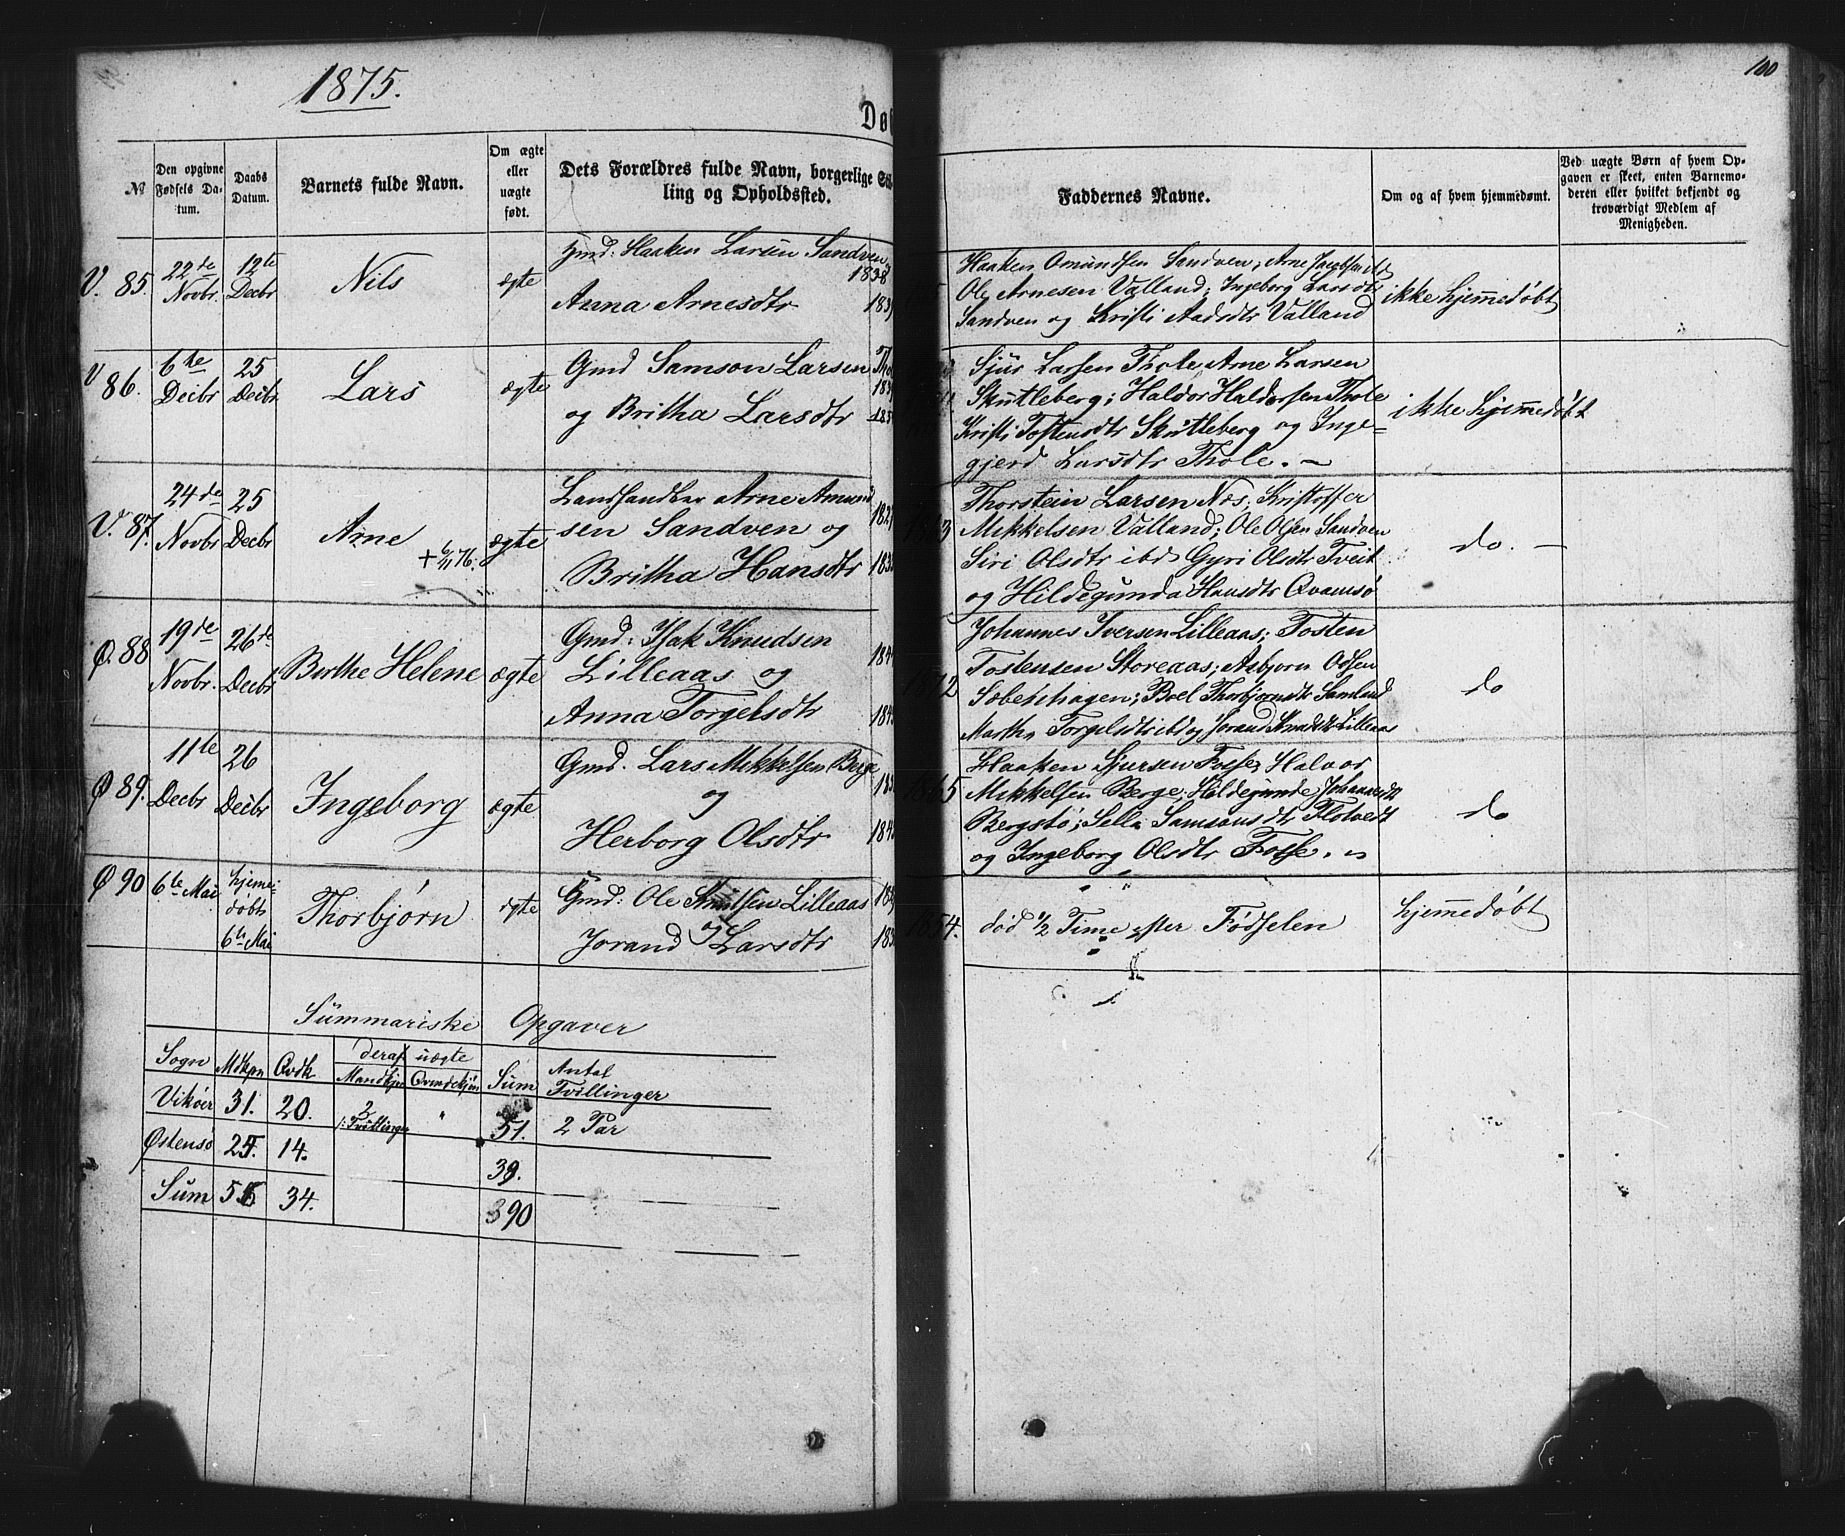 1875.
100
Dø
№
Den opgivne Fødsels Datum.
Daabs Datum.
Barnets fulde Navn.
Om ægte eller uægte født.
Dets Forældres fulde Navn, borgerlige
ling og Opholdssted.
Faddernes Navne.
Om og af hvem hjemmedømt.
Ved uægte Børn af hvem Opgaven er skeet, enten Barnemoderen eller hvilket bekjendt og troværdigt Medlem af Menigheden.
V. 85. 22de Novbr 12te Decbr
Nils
ægte
Gmd: Haaken Larsen Sandven
1838
Anna Arnesdtr
Haaken Omundsen Sandven; Arne
Ole Arnesen Valland; Ingeborg Larsdtr
Sandven og Kristi Aadsdtr Valland
ikke hjemmedøbt
V 86. 6te Decbr 25 Decbr
Lars
ægte
Gmd Samson Larsen
og Britha Larsdtr
Sjur Larsen Thole, Arne Larsen
Skutleberg; Haldor Haldorsen Thole
Kristi Tostensdtr Skutleberg og Inge-
gjerd Larsdtr Thole. —
ikke hjemmedøbt
V. 87. 24de Novbr 25 Decbr
Arne
ægte
Landhandler Arne Amund
sen Sandven og
Britha Hansdtr
Thorstein Larsen Næs; Kristoffer
Mikkelsen Valland; Ole Olsen Sandven
Siri Olsdtr ibd Gyri Olsdtr Tveit
og Hildegunda Hansdtr Qvamsø
do. —
Ø. 88 19de Novbr. 26de Decbr
Berthe Helene
ægte
Gmd: Isak Knudsen
Lilleaas og
Anna Torgelsdtr
1872
Johannes Iversen Lilleaas; Tosten
Tostensen Storeaas; Asbjørn Odsen
Søbenhagen; Boel Thorbjørnsdtr Samland
Martha Torgelsdtr ibd og Jorand Knudsdtr Lilleaas
do
Ø 89. 11te Decbr 26 Decbr
Ingeborg
ægte
Gmd. Lars Mikkelsen Berge
og
Herborg Olsdtr
1865
Haaken Sjursen Fosse; Halvor
Mikkelsen Berge; Hildegunde Johannesdtr
Bergstø; Sella Samsonsdtr Flotvedt
og Ingeborg Olsdtr Fosse.
do
Ø 90 6te Mai hjemedøbt 6te Mai
Thorbjørn
ægte
Gmd: Ole Knutsen Lilleaas
Jorand Larsdtr
1854.
død ½ Time efter Fødselen
hjemmedøbt
Summariske Opgaver
Sogn Mdkjøn Qvdk deraf uægte Sum Antal Tvillinger
Mandkjøn Qvindekjøn
Vikøer 31. 20. 2 /: Tvillinger " 51. 2 Par
Østensø 25. 14. 39.
Sum 56 34. 90